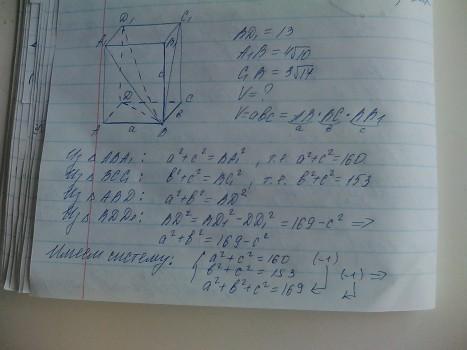 D₁ C₁
A₁ B₁
c
D C
в
A a B
BD₁ = 13
A₁B = 4√10
C₁B = 3√17
V = ?
V = abc = AB · BC · BB₁
a в c
Из △ ABA₁: a² + c² = BA₁², т.е. a² + c² = 160
Из △ BCC₁: в² + c² = BC₁², т.е. в² + c² = 153
Из △ ABD: a² + в² = BD²
Из △ BDD₁: BD² = BD₁² − DD₁² = 169 − c² ⇒
a² + в² = 169 − c²
Имеем систему: { a² + c² = 160 (−1)
в² + c² = 153 (−1) ⇒
a² + в² + c² = 169